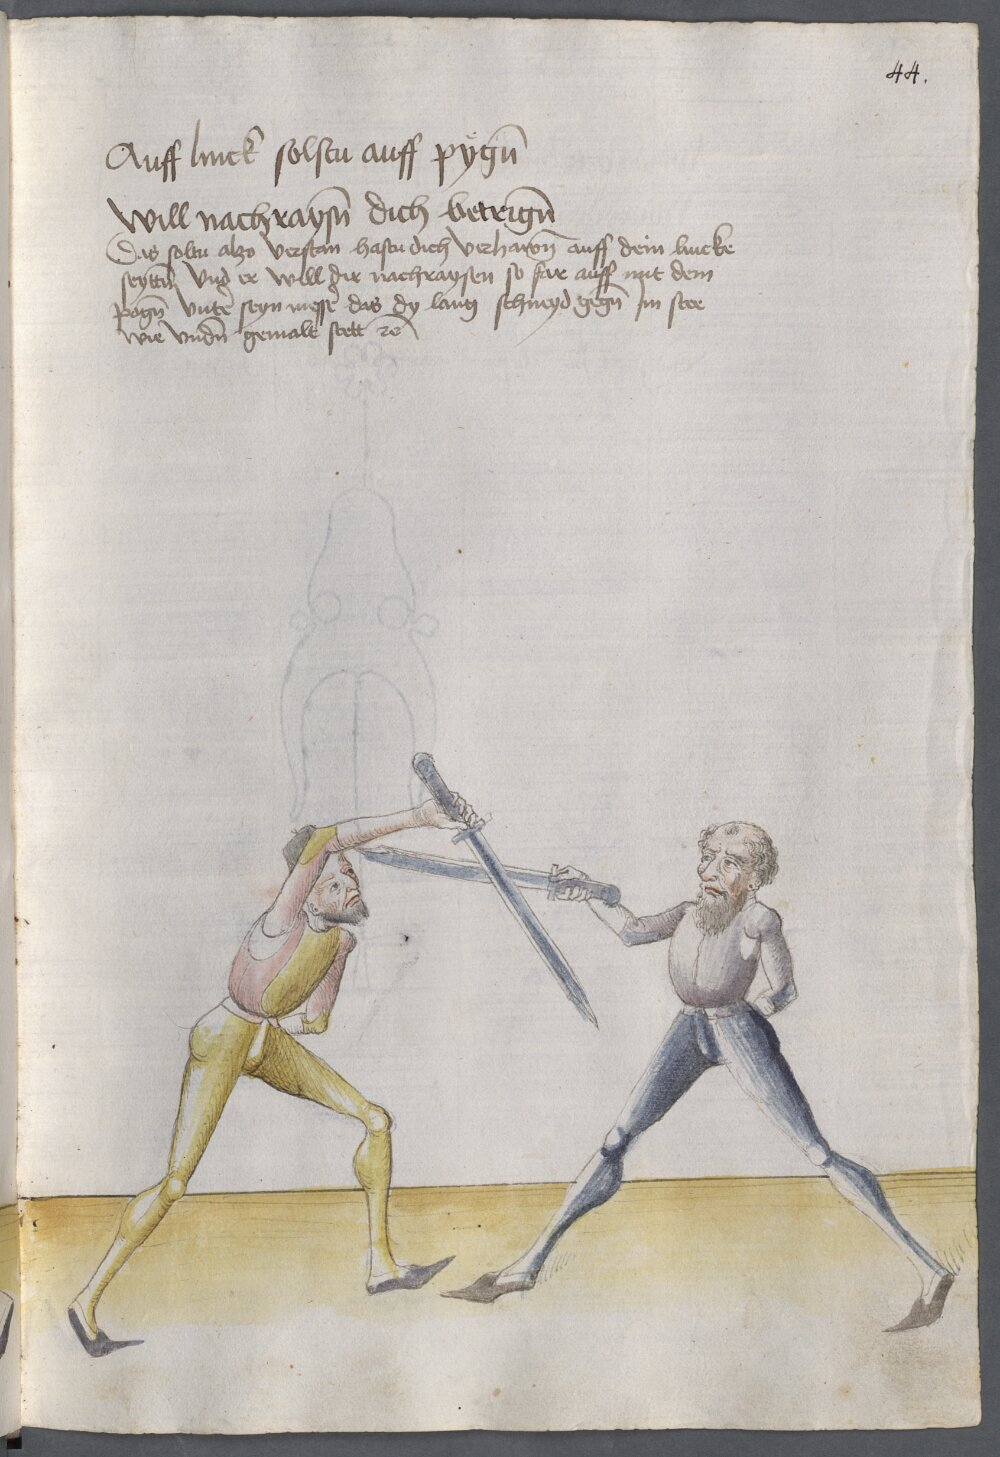 44.
Auff linck solstu auff pÿgn̄
Will nachraysn̄ dich betrign̄
Das soltu also verstan hastu dich verhawn̄ auff dein lincke
seyttn̄ Und er will dir nachraysen so far auff mit dem
pogn̄ vnter seyn messer das dy lang schneyd gegn̄ im stee
wie vndn̄ gemalt stett